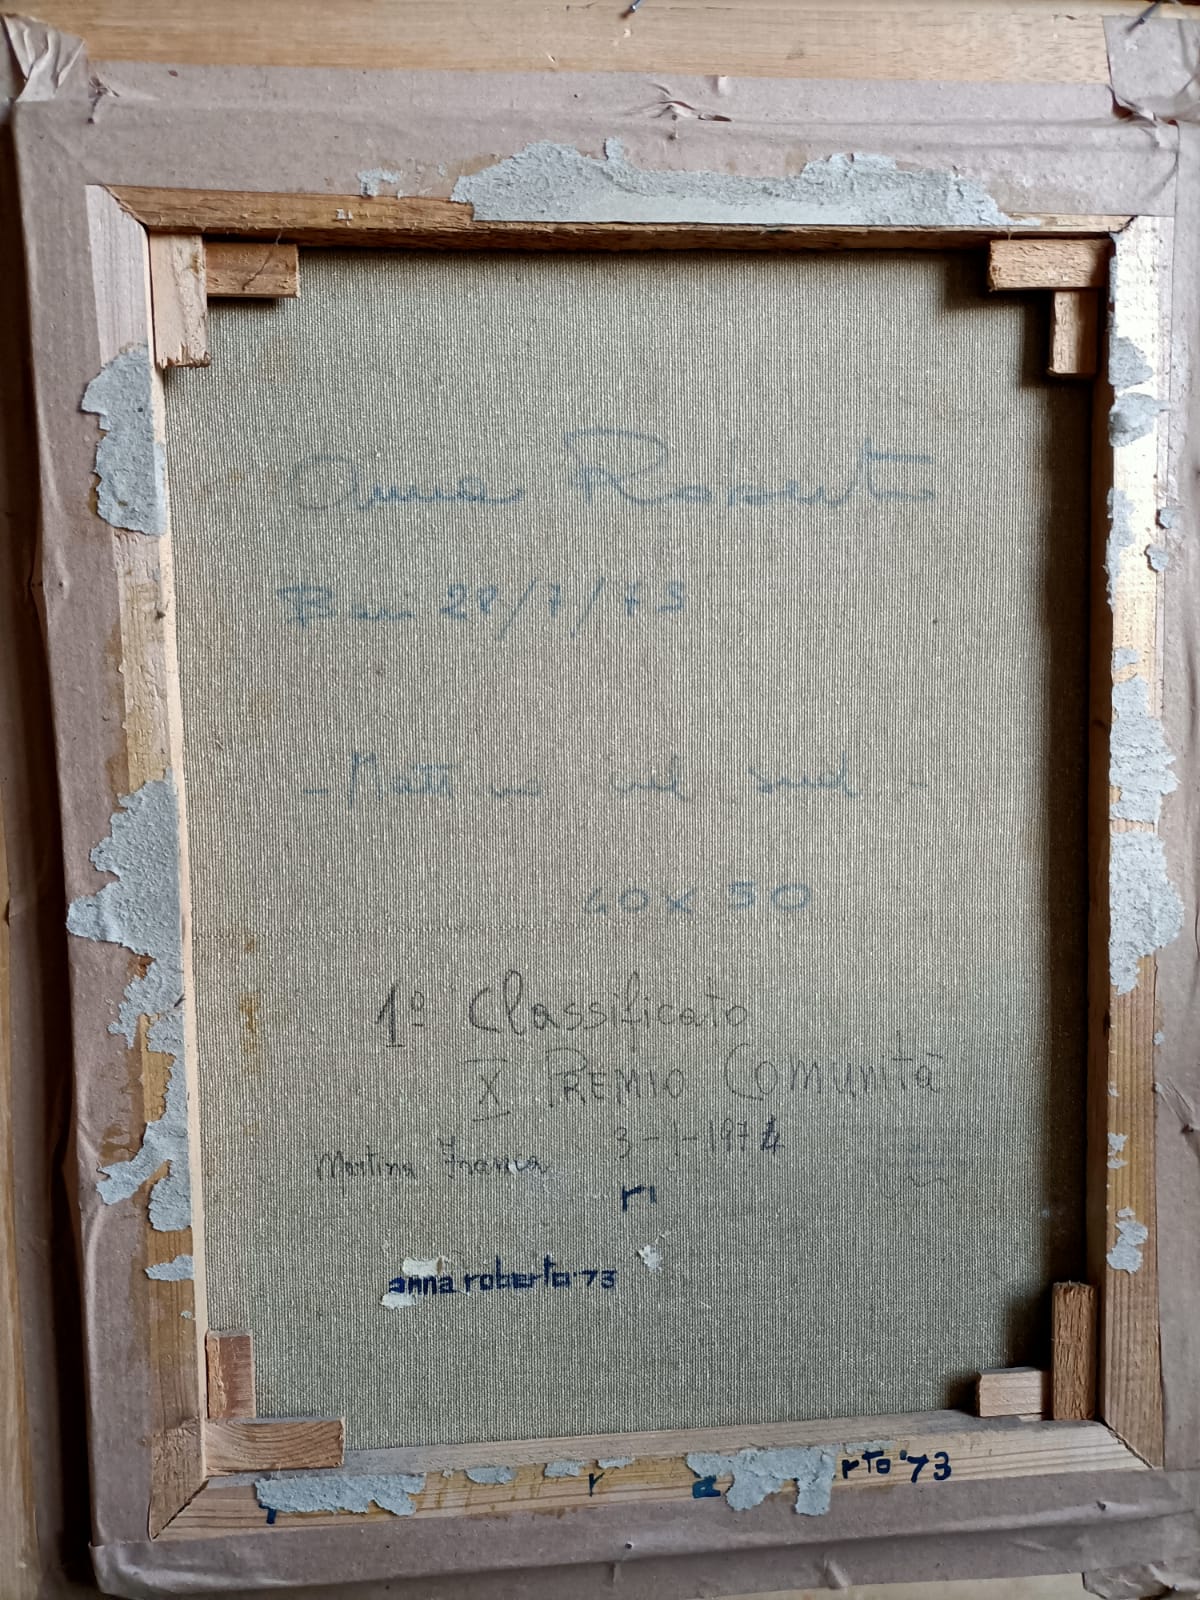 Anna Roberto
Bari 28/7/73
- Mattino nel sud -
40x50
1º Classificato
X PREMIO Comunità
Martina Franca 3-1-1974
ri
anna roberto '73
r a rto '73